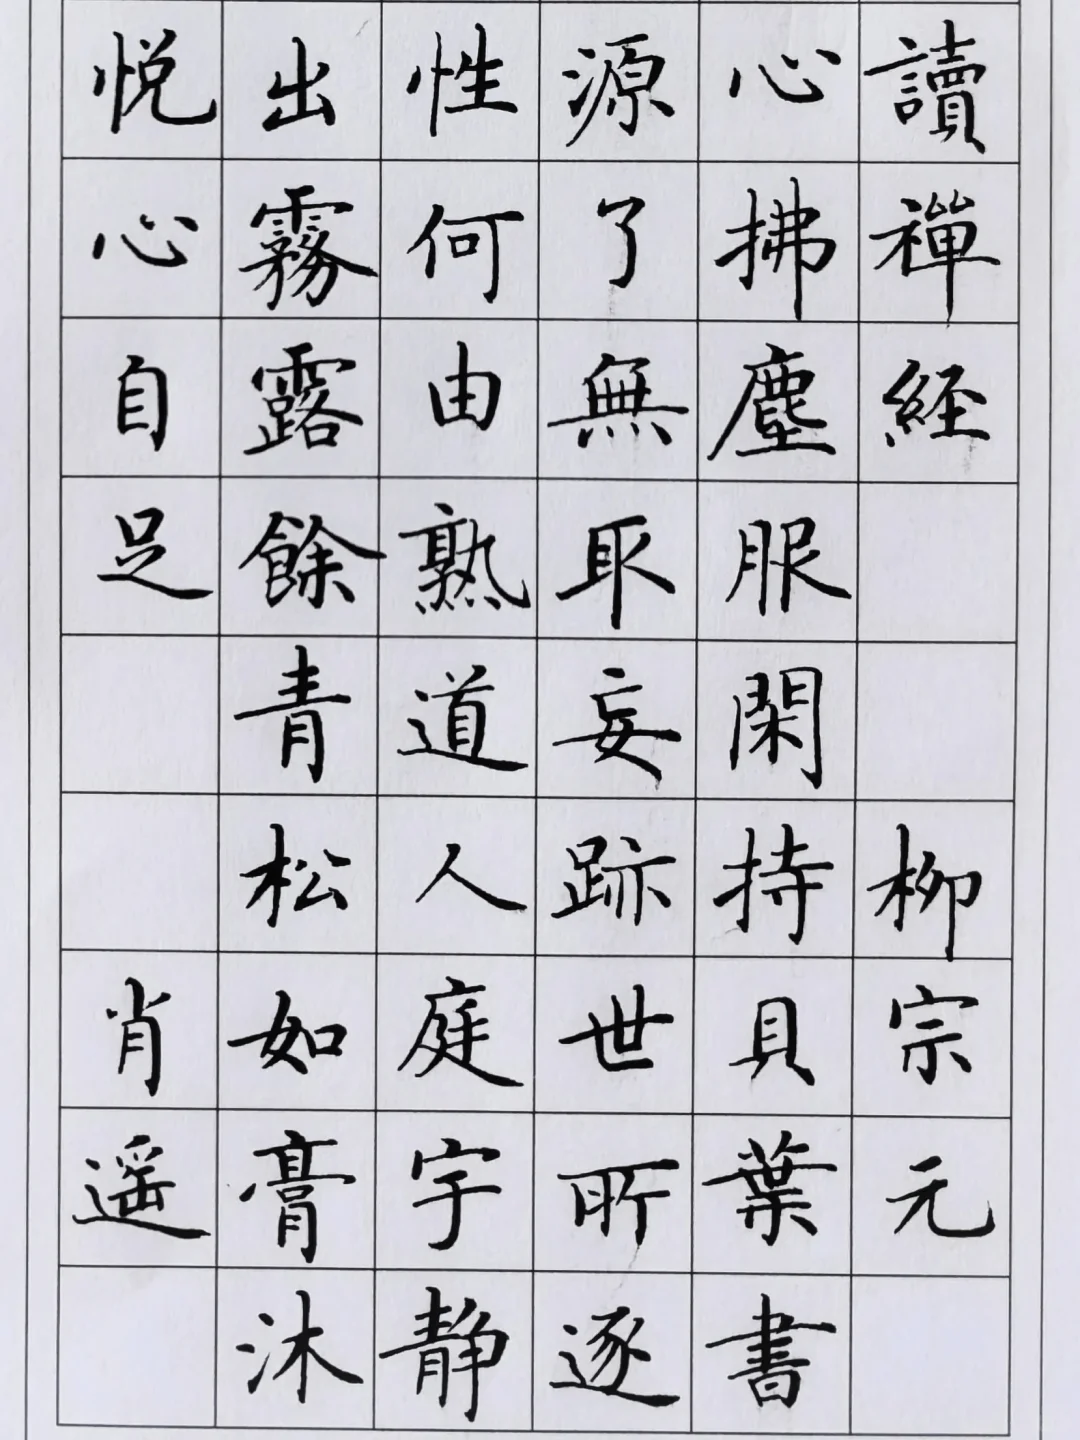 讀禪經 柳宗元
心拂塵服閑持貝葉書
源了無取妄跡世所逐
性何由熟道人庭宇静
出霧露餘青松如膏沐
悦心自足 肖遥